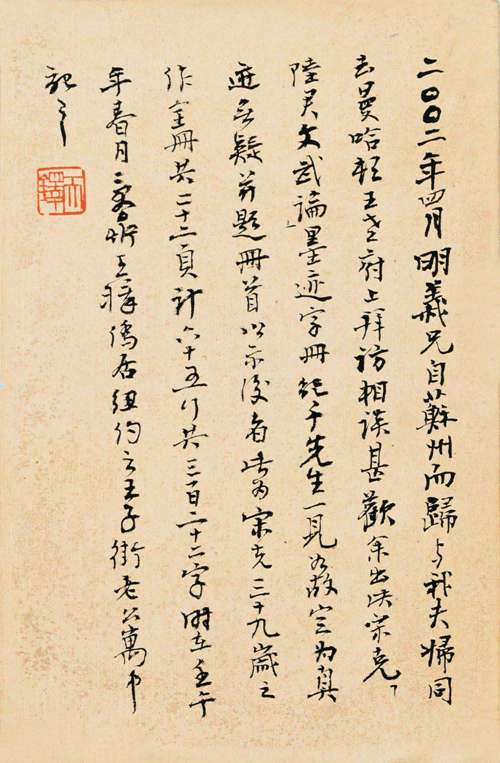 二〇〇二年四月明義兄自蘇州而歸与我夫婦同
去曼哈頓王老府上拜訪相談甚歡余出宋克「
陸君文武論」墨迹字冊千先生一見定为真
迹无疑并題冊首以示後者此为宋克三十九歲之
作全冊共二十二頁計六十五行共三百二十二字時在壬午
年春月王僑居紐約之王子街老公寓中
記之